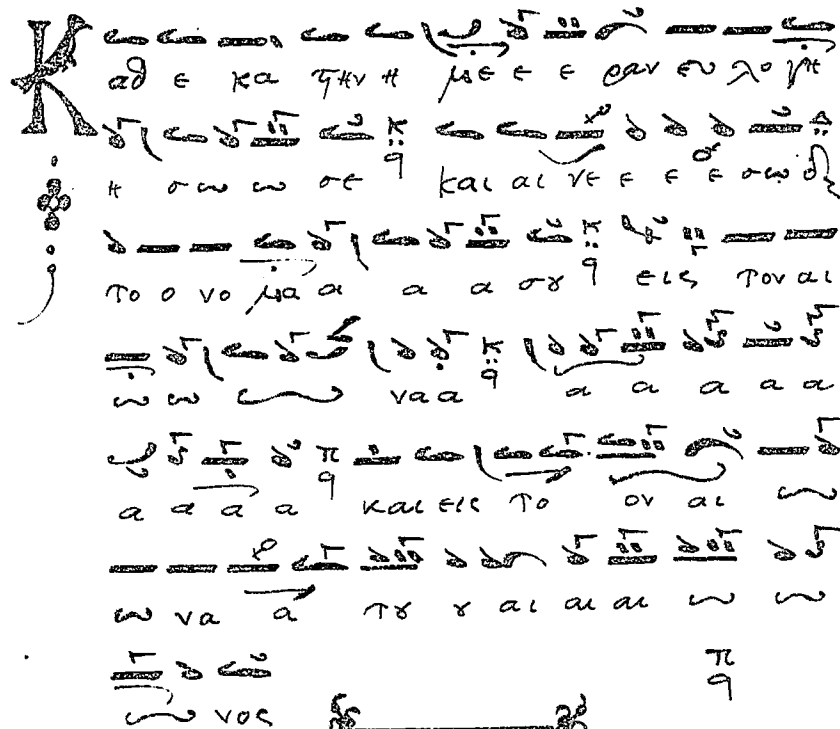 Καθ ε κα στην η με ε ε ραν ευ λο γη
η σω ω σε και αι νε ε ε ε σω
το ο νο μα α α α σου εις τον αι
ω ω να α α α α α α
α α α α και εις το ον αι
ω να α του ου αι αι αι
νος